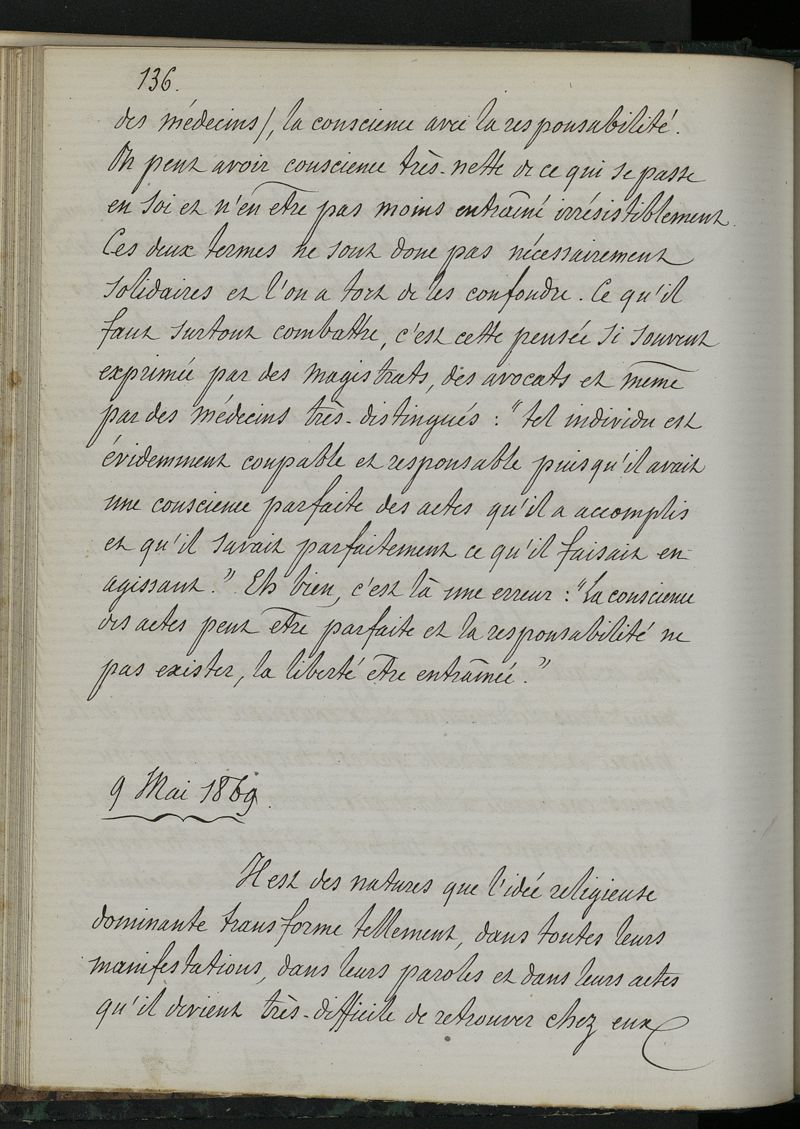 136.
des médecins), la conscience avec la responsabilité.
On peut avoir conscience très-nette de ce qui se passe
en soi et n'en être pas moins entraîné irrésistiblement.
Ces deux termes ne sont donc pas nécessairement
solidaires et l'on a tort de les confondre. Ce qu'il
faut surtout combattre, c'est cette pensée si souvent
exprimée par des magistrats, des avocats et même
par des médecins très-distingués : "tel individu est
évidemment coupable et responsable puisqu'il avait
une conscience parfaite des actes qu'il a accomplis
et qu'il savait parfaitement ce qu'il faisait en
agissant." Eh bien, c'est là une erreur : "La conscience
des actes peut être parfaite et la responsabilité ne
pas exister, la liberté être entraînée."
9 Mai 1869.
Il est des natures que l'idée religieuse
dominante transforme tellement, dans toutes leurs
manifestations, dans leurs paroles et dans leurs actes
qu'il devient très-difficile de retrouver chez eux